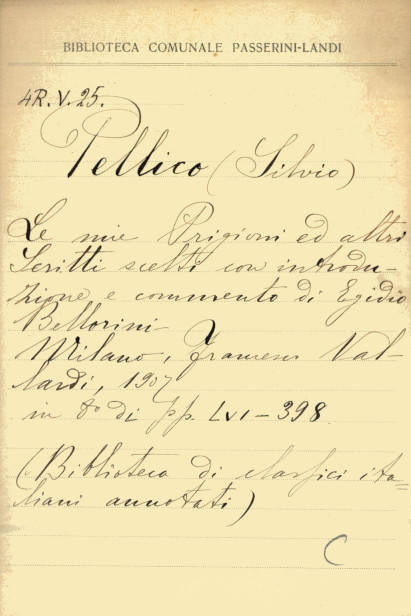 BIBLIOTECA COMUNALE PASSERINI-LANDI
4R.V.25.
Pellico (Silvio)
Le mie Prigioni ed altri
Scritti scelti con introdu-
zione e commento di Egidio
Bellorini
Milano, Francesco Val-
lardi, 1907
in 8° di pp. LVI-398
(Biblioteca di classici ita=
liani annotati)
C